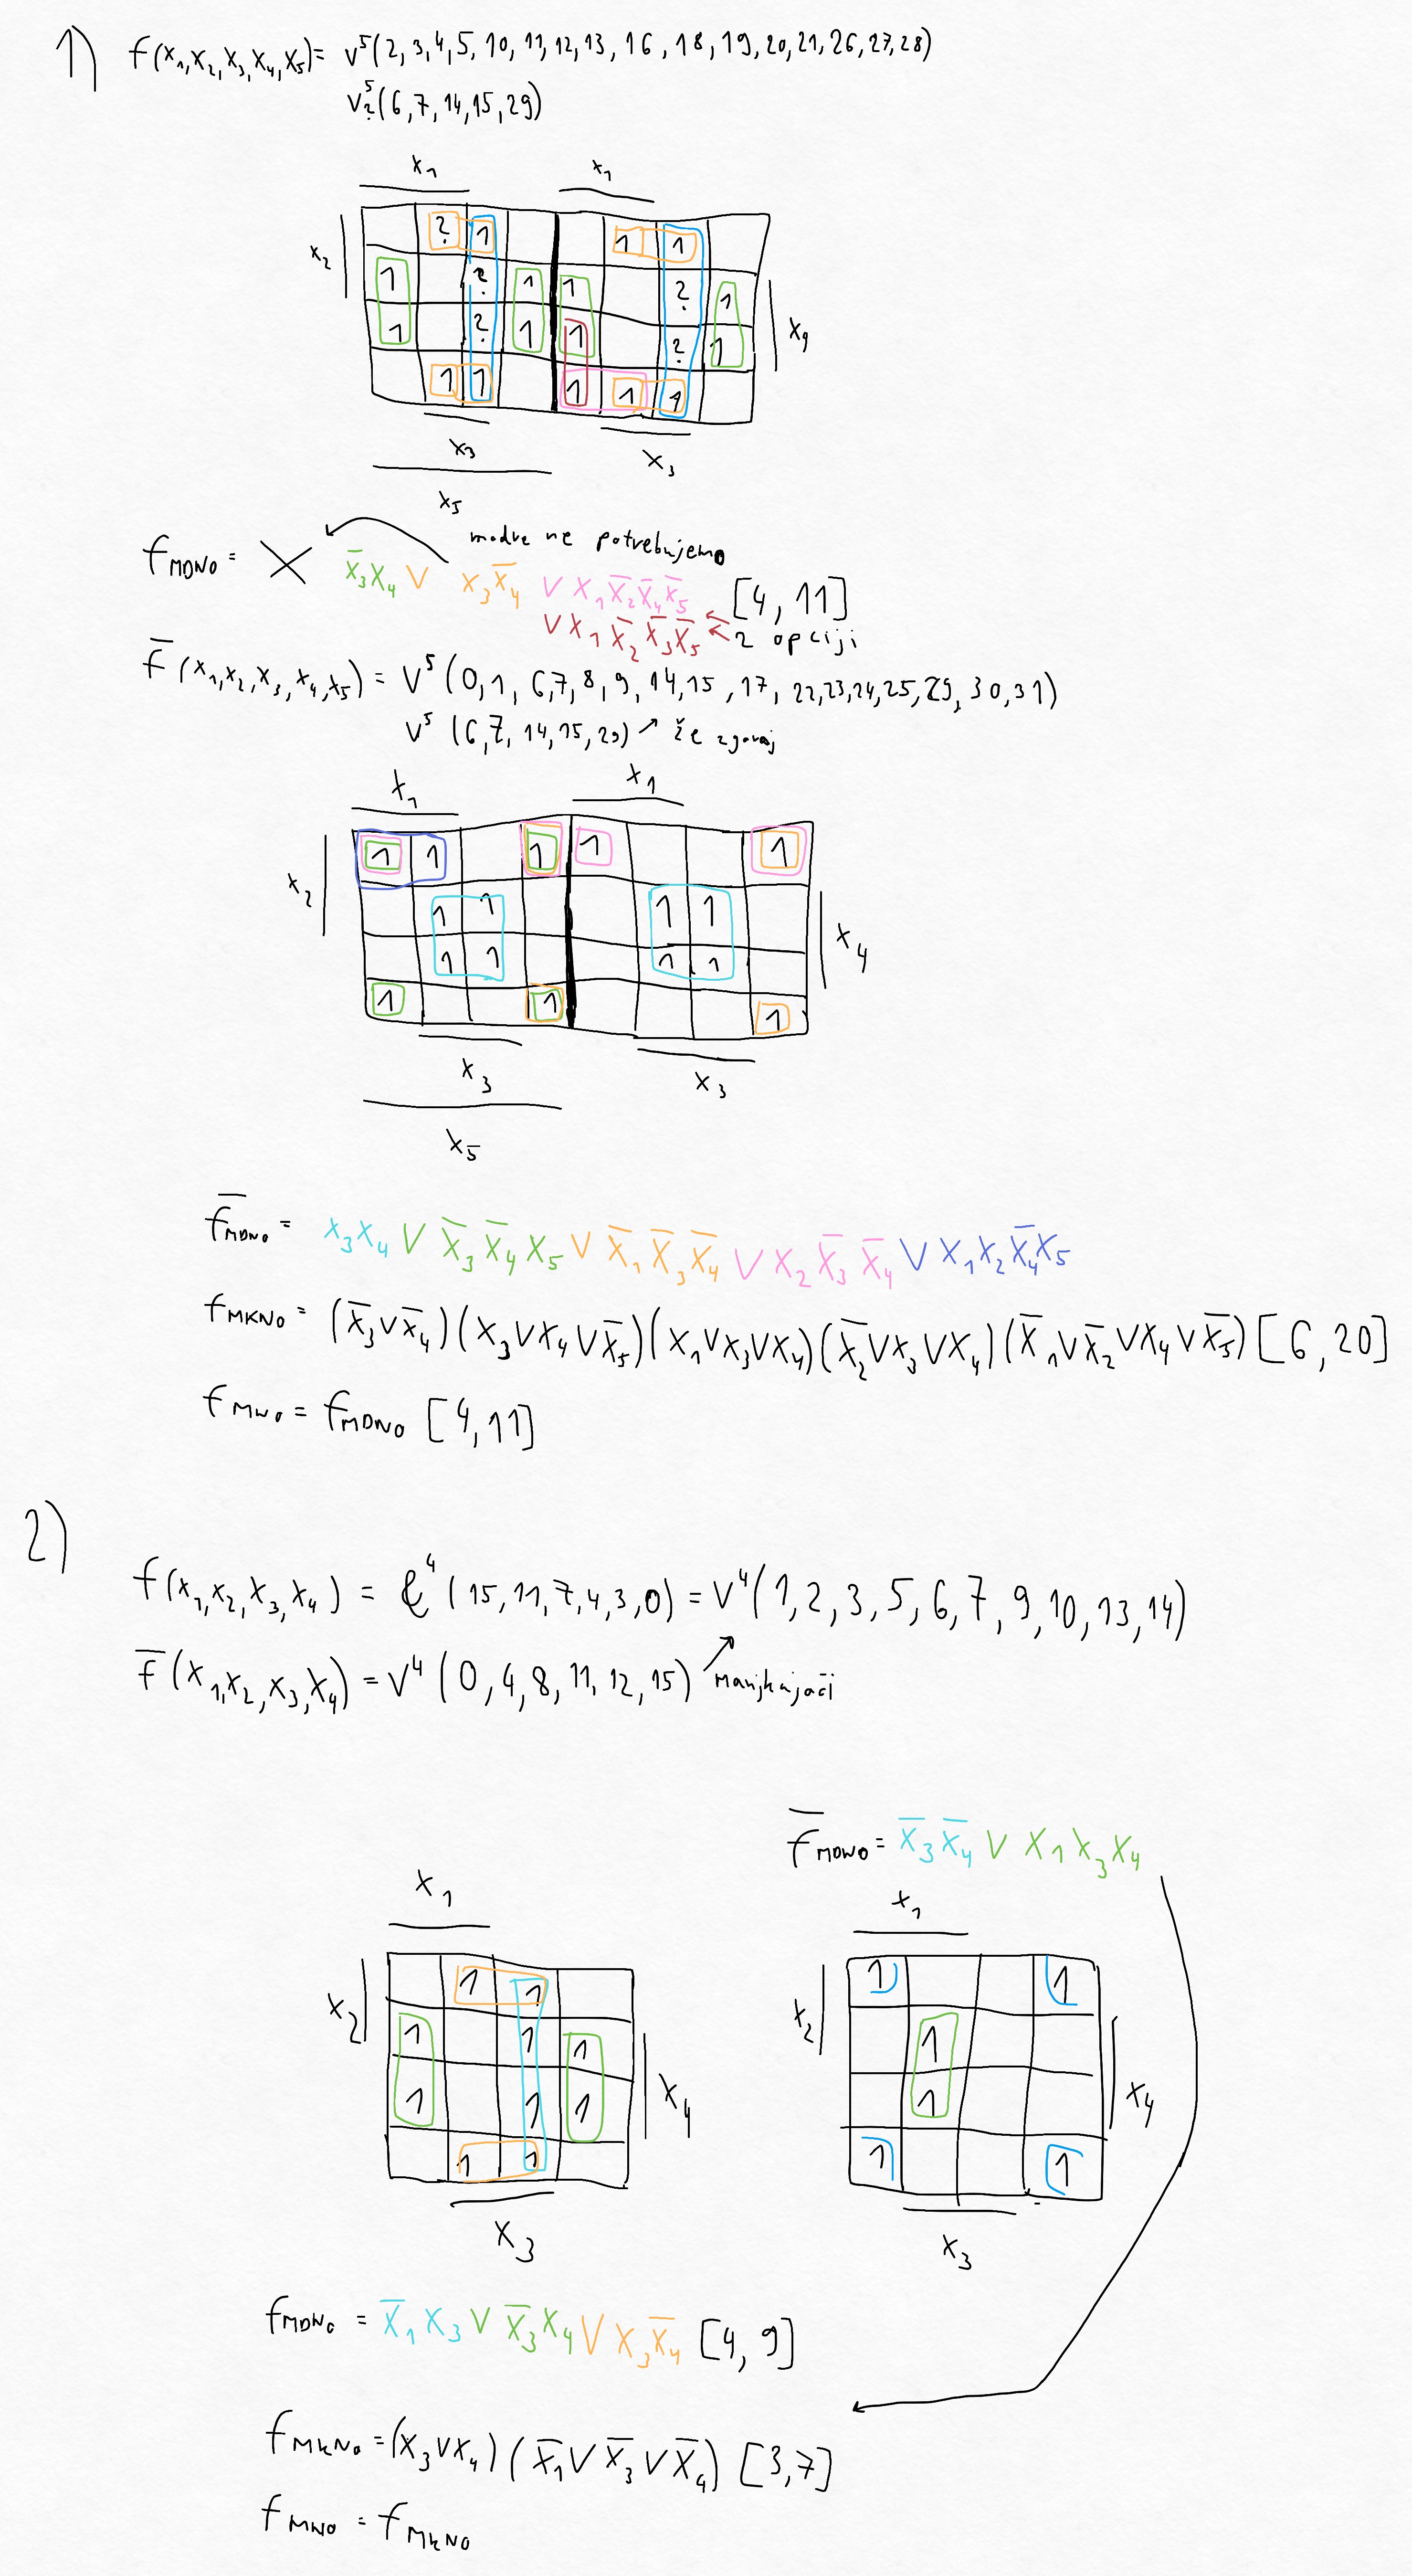 1) f(x₁,x₂,x₃,x₄,x₅)= V⁵(2,3,4,5,10,11,12,13,16,18,19,20,21,26,27,28)
V⁵?(6,7,14,15,29)
x₁ x₁
x₂
? 1 1 1
1 ? 1 1 ? 1
1 ? 1 1 ? 1
x₄
1 1 1 1 1
x₃ x₃
x₅
modre ne potrebujemo
fMDNO = X x̄₃x₄ V x₃x̄₄ V x₁x̄₂x̄₄x̄₅ [4,11]
V x₁x̄₂x̄₃x̄₅ 2 opciji
f̄(x₁,x₂,x₃,x₄,x₅) = V⁵(0,1,6,7,8,9,14,15,17,22,23,24,25,29,30,31)
V⁵(6,7,14,15,29) ↗ že zgoraj
x₁ x₁
x₂
1 1 1 1 1
1 1 1 1
1 1 1 1
x₄
1 1 1
x₃ x₃
x₅
f̄MDNO = x₃x₄ V x̄₃x̄₄x₅ V x̄₁x̄₃x̄₄ V x₂x̄₃x̄₄ V x₁x₂x̄₄x₅
fMKNO = (x̄₃Vx̄₄)(x₃Vx₄Vx̄₅)(x₁Vx₃Vx₄)(x̄₂Vx₃Vx₄)(x̄₁Vx̄₂Vx₄Vx̄₅)[6,20]
fMNO = fMDNO [4,11]
2)
f(x₁,x₂,x₃,x₄) = &⁴(15,11,7,4,3,0) = V⁴(1,2,3,5,6,7,9,10,13,14)
f̄(x₁,x₂,x₃,x₄) = V⁴(0,4,8,11,12,15) ↗ manjkajoči
f̄MDNO = x̄₃x̄₄ V x₁x₃x₄
x₁ x₁
x₂ x₂
1 1 1 1
1 1 1 1
1 1 1 1
x₄ x₄
1 1 1 1
x₃ x₃
fMDNO = x̄₁x₃ V x̄₃x₄ V x₃x̄₄ [4,9]
fMKNO = (x₃Vx₄)(x̄₁Vx̄₃Vx̄₄) [3,7]
fMNO = fMKNO